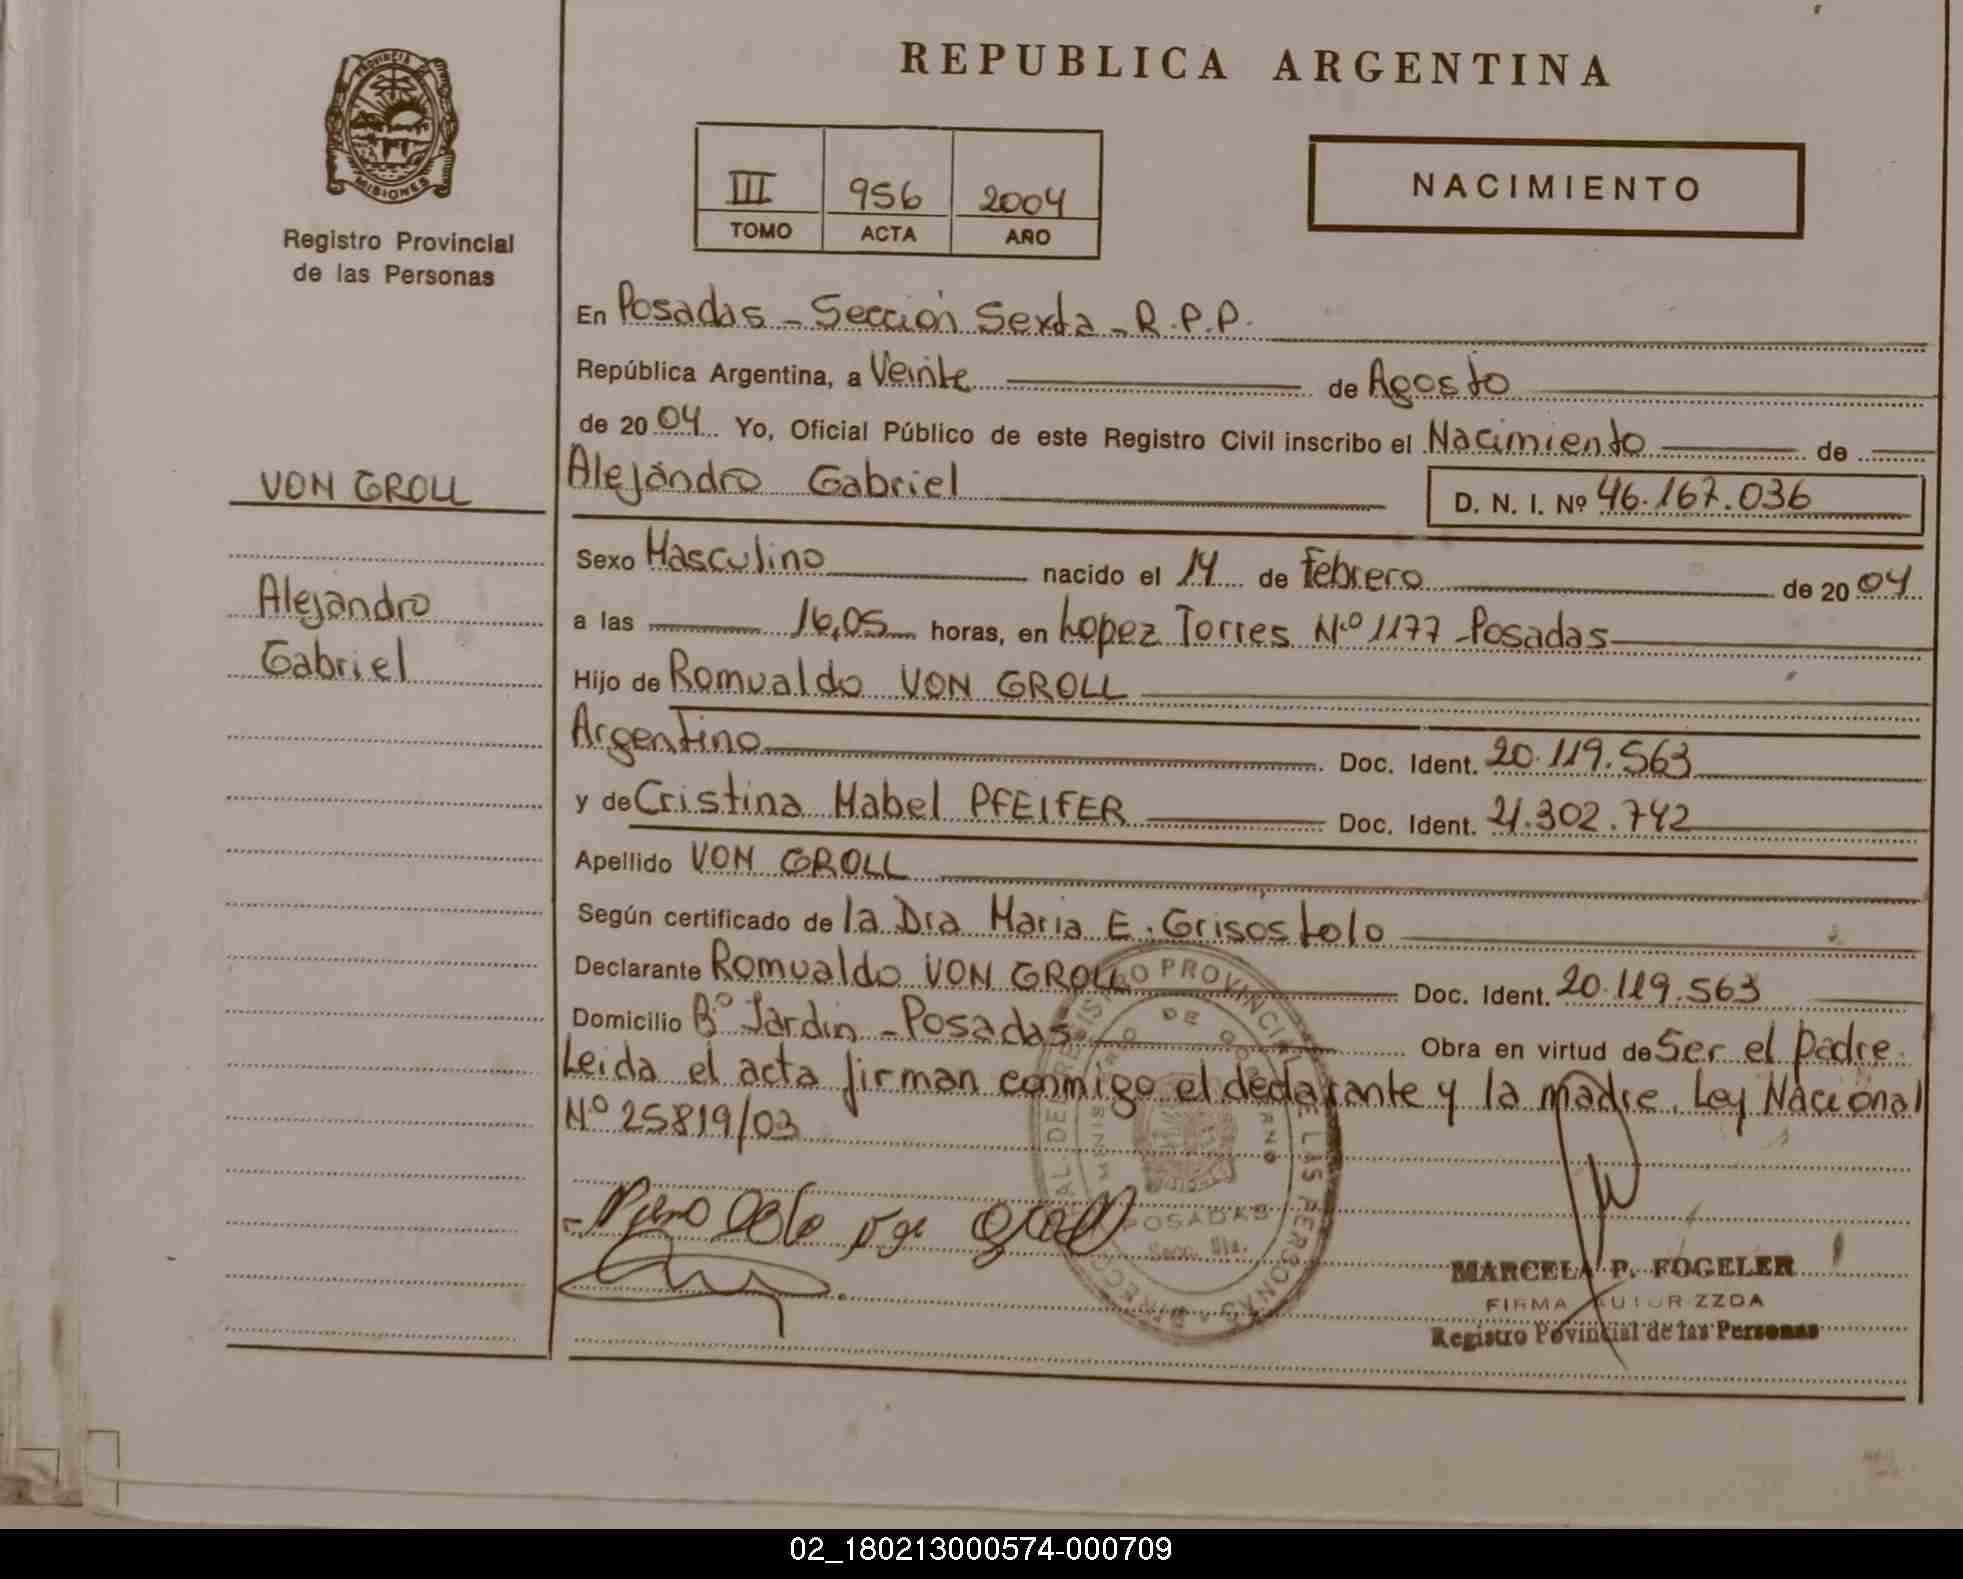 REPUBLICA ARGENTINA
PROVINCIA DE
MISIONES
Registro Provincial
de las Personas
III 956 2004
TOMO ACTA AÑO
NACIMIENTO
En Posadas - Sección Sexta - R.P.P.
República Argentina, a Veinte de Agosto
de 2004 Yo, Oficial Público de este Registro Civil inscribo el Nacimiento de
VON GROLL
Alejandro Gabriel D. N. I. Nº 46.167.036
Sexo Masculino nacido el 14 de Febrero de 2004
Alejandro
Gabriel
a las 16,05 horas, en Lopez Torres Nº 1177 - Posadas
Hijo de Romualdo VON GROLL
Argentino Doc. Ident. 20.119.563
y de Cristina Mabel PFEIFER Doc. Ident. 21.302.742
Apellido VON GROLL
Según certificado de la Dra Maria E. Grisostolo
Declarante Romualdo VON GROLL Doc. Ident. 20.119.563
Domicilio Bº Jardin - Posadas Obra en virtud de Ser el padre.
Leida el acta firman conmigo el declarante y la madre. Ley Nacional
Nº 25819/03
REGISTRO PROVINCIAL DE LAS PERSONAS
POSADAS
Secc. 6ta.
MARCELA P. FOGELER
FIRMA AUTORIZZDA
Registro Povincial de las Personas
02_180213000574-000709